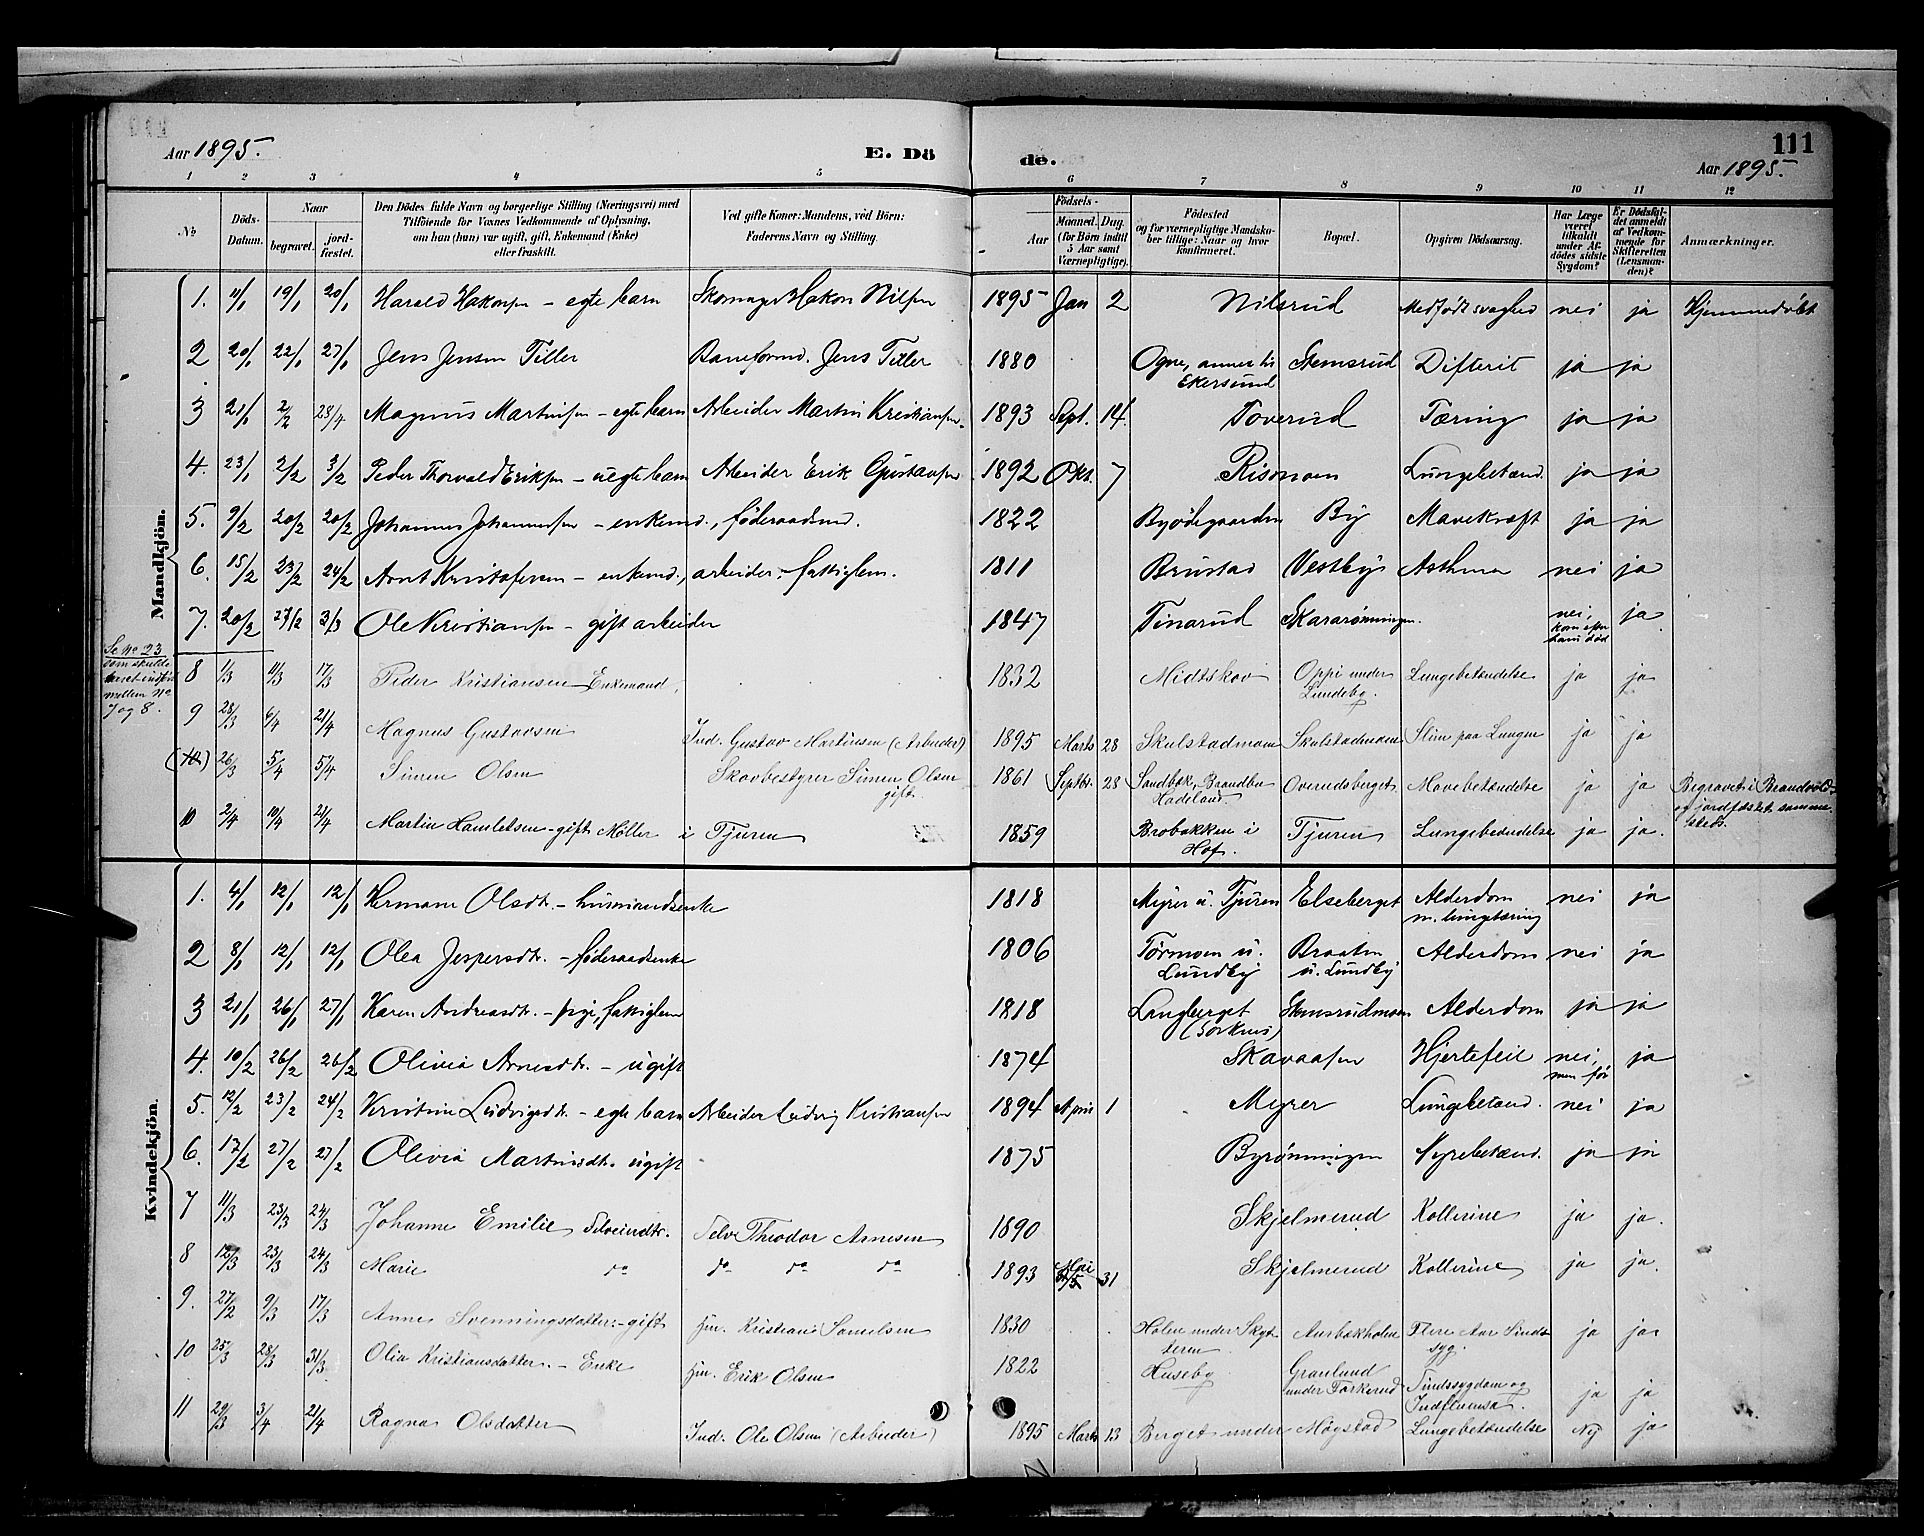 Aar 1895.
E. Dö
de.
111
Aar 1895.
1 2 3 4 5 6 7 8 9 10 11 12
№
Döds-Datum.
Naar
begravet.
jord-fæstet.
Den Dödes fulde Navn og borgerlige Stilling (Næringsvei) med
Tilföiende for Voxnes Vedkommende af Oplysning,
om han (hun) var ugift, gift, Enkemand (Enke)
eller fraskilt.
Ved gifte Koner: Mandens, ved Börn:
Faderens Navn og Stilling.
Födsels-
Aar
Maaned. Dag.
(for Börn indtil
5 Aar samt
Værnepligtige).
Födested
og for værnepligtige Mandska-
ber tillige: Naar og hvor
konfirmeret.
Bopæl.
Opgiven Dödsaarsag.
Har Læge
været
tilkaldt
under Af-
dödes sidste
Sygdom?
Er Dödsfal-
det anmeldt
af Vedkom-
mende for
Skifteretten
(Lensman-
den)?
Anmærkninger.
Mandkjön.
1. 11/1 19/1 20/1 Harald Hakonsen - egte barn Skomager Hakon Nilsen 1895 Jan 2 Nilsrud Medfødt svaghed nei ja Hjemmedøbt
2 20/1 22/1 27/1 Jens Jensen Tiller Baneformd. Jens Tiller 1880 Ogne, annex til Ekersund Stemsrud Difterit ja ja
3 21/1 2/2 28/4 Magnus Martinsen - egte barn Arbeider Martin Kristiansen. 1893 Sept. 14. Toverud Tæring ja ja
4. 23/1 2/2 3/2 Peder Thorvald Eriksen - uegte barn Arbeider Erik Gustavsen 1892 Okt. 7 Risomoen Lungebetænd. ja ja
5. 9/2 20/2 20/2 Johannes Johannessen - enkemd., føderaadsmd. 1822 Byødegaarden By Mavekræft ja ja
6. 15/2 23/2 24/2 Arnt Kristofersen - enkemd., arbeider, fattiglem. 1811 Brustad Vestby Asthma nei ja
7. 20/2 27/2 3/3 Ole Kristiansen - gift arbeider 1847 Tinarud Skararønningen. nei, kom efter han død ja
Se № 23
som skulde
været indført
mellem №
7 og 8.
8 1/3 11/3 17/3 Peder Kristiansen Enkemand, 1832 Midtskov Oppi under Lundeby. Lungebetændelse ja ja
9 28/3 6/4 21/4 Magnus Gustavsen Ind. Gustav Martinsen (Arbeider) 1895 Marts 28 Skulstadmoen Skulstadmoen Slim paa Lungen ja ja
(10) 26/3 5/4 5/4 Simen Olsen Skovbestyrer Simen Olsen gift. 1861 Septbr. 28 Sandbæk, Brandbu Hadeland. Overudsberget Mavebetændelse ja ja Begravet i Brandvold og jordfæstet samme-steds.
10 2/4 10/4 21/4 Martin Hamletsen - gift Møller i Tjuren 1859 Brobakken i Hof. Tjuren Lungebetændelse ja ja.
Kvindekjön.
1. 4/1 12/1 12/1 Hermane Olsdt. - husmandsenke 1818 Myrer u. Tjuren Elseberget Alderdom m. lungtæring nei ja
2 8/1 12/1 12/1 Olea Jespersdt. - føderaadsenke 1806 Tørmoen u. Lundby Braaten u. Lundby Alderdom nei ja
3 21/1 26/1 27/1 Karen Andreasdt. - pige, fattiglem 1818 Langberget (Sorknes) Stemsrudmoen Alderdom ja ja
4. 10/2 26/2 26/2 Olivia Arnesdt. - ugift 1874 Skavaasen Hjertefeil nei, men før ja
5. 12/2 23/2 24/2 Kristine Ludvigsdt. - egte barn Arbeider Ludvig Kristiansen 1894 April 1 Myrer Lungebetænd. nei ja
6. 17/2 27/2 27/2 Olivia Martinsdt. ugift 1875 Byrønningen Nyrebetænd. ja ja
7 11/3 23/3 24/3 Johanne Emilie Selveierdtr. Selv. Theodor Arnesen 1890 Skjelmerud Kollerine ja ja.
8 12/3 23/3 24/3 Marie do do do do 1893 Mai 31 Skjelmerud Kollerine ja ja.
9. 27/2 9/3 17/3 Anne Svenningsdatter - gift Hm. Kristian Samelsen 1830 Holen under Skyt-teren Aurbækholen Flere Aar Sinds-syg. ja ja
10 25/3 28/3 31/3 Olia Kristiansdatter. - Enke Hm. Erik Olsen 1822 Huseby Granlund under Torkerud Sindssygdom og Indfluensa. ja ja
11 29/3 3/4 21/4 Ragna Olsdatter Ind. Ole Olsen (Arbeider) 1895 Marts 13 Berget under Møystad Lungebetændelse Nej ja